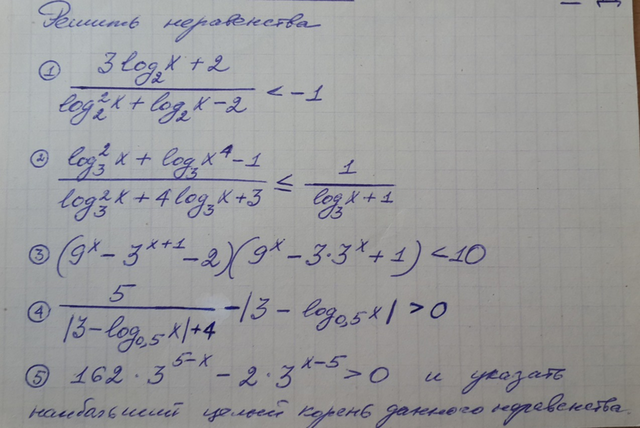 Решить неравенства
① (3log₂x + 2)/(log₂²x + log₂x − 2) < −1
② (log₃²x + log₃x⁴ − 1)/(log₃²x + 4log₃x + 3) ≤ 1/(log₃x + 1)
③ (9ˣ − 3ˣ⁺¹ − 2)(9ˣ − 3·3ˣ + 1) < 10
④ 5/(|3 − log₀,₅x| + 4) − |3 − log₀,₅x| > 0
⑤ 162 · 3⁵⁻ˣ − 2 · 3ˣ⁻⁵ > 0 и указать
наибольший целый корень данного неравенства.